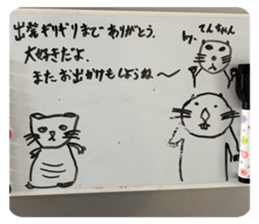 出発ギリギリまでありがとう。
大好きだよ。
またお出かけもしようね〜
by. てんちゃん